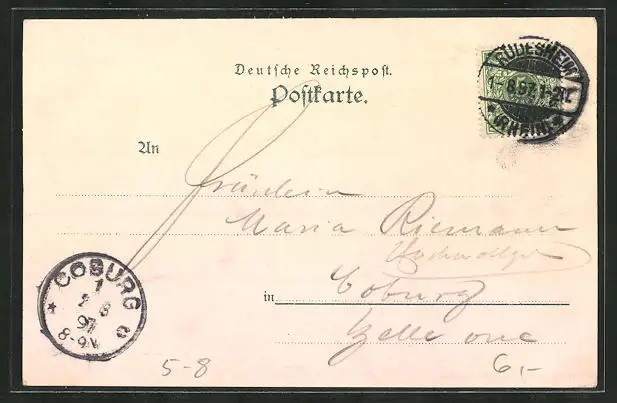 Deutsche Reichspost.
Postkarte.
RÜDESHEIM
1-8.97.1-2N.
*(RHEIN)*
An
Fräulein
Maria Riemann
COBURG
1
2 8
97
8-9V.
in Coburg
5-8
6,-